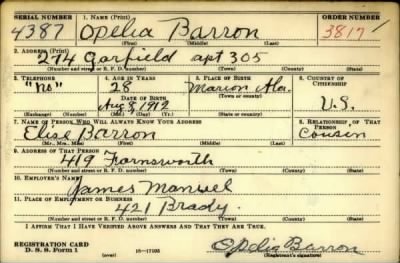 SERIAL NUMBER 1. NAME (Print) ORDER NUMBER
4387 Opelia Barron 3817
(First) (Middle) (Last)
2. ADDRESS (Print)
274 Garfield apt 305
(Number and street or R. F. D. number) (Town) (County) (State)
3. TELEPHONE 4. AGE IN YEARS 5. PLACE OF BIRTH 6. COUNTRY OF CITIZENSHIP
"no" 28 Marion Ala.
DATE OF BIRTH (Town or county)
Aug 8, 1912 U.S.
(Exchange) (Number) (Mo.) (Day) (Yr.) (State or country)
7. NAME OF PERSON WHO WILL ALWAYS KNOW YOUR ADDRESS 8. RELATIONSHIP OF THAT PERSON
Elise Barron Cousin
(Mr., Mrs., Miss) (First) (Middle) (Last)
9. ADDRESS OF THAT PERSON
419 Farnsworth
(Number and street or R. F. D. number) (Town) (County) (State)
10. EMPLOYER'S NAME
James Manuel
11. PLACE OF EMPLOYMENT OR BUSINESS
421 Brady.
(Number and street or R. F. D. number) (Town) (County) (State)
I AFFIRM THAT I HAVE VERIFIED ABOVE ANSWERS AND THAT THEY ARE TRUE.
REGISTRATION CARD
D. S. S. Form 1 (over) 16-17105 Opelia Barron
(Registrant's signature)